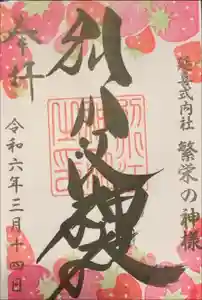 延喜式内社
繁栄の神様
奉拝
別小江神社
令和六年三月十四日